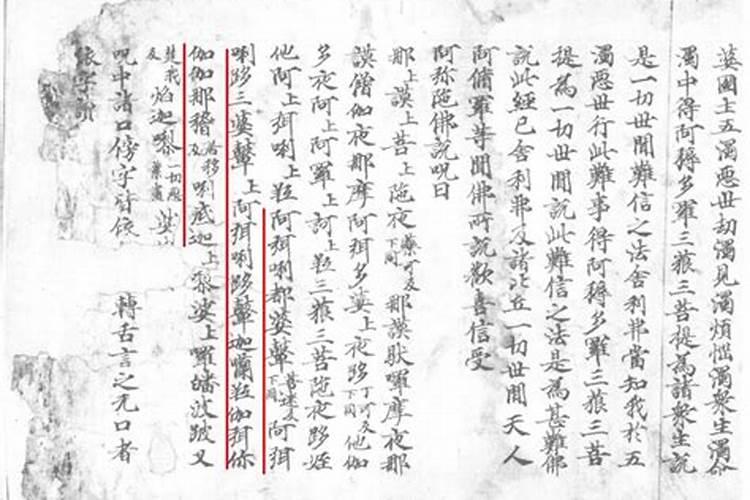 婆國土五濁惡世劫濁見濁煩惱濁衆生濁命
濁中得阿耨多羅三藐三菩提為諸衆生說
是一切世間難信之法舍利弗當知我於五
濁惡世行此難事得阿耨多羅三藐三菩
提為一切世間說此難信之法是為甚難佛
說此經已舍利弗及諸比丘一切世間天人
阿脩羅等聞佛所說歡喜信受
阿弥陁佛說呪曰
那上謨上菩上陁夜藥可反下同那謨馱囉摩夜那
謨僧伽夜那摩阿弭多婆上夜跢丁可反下同他伽
多夜阿上阿羅上訶上粒三藐三菩陁夜跢姪
他阿上弭唎上粒阿弭唎都婆鞞菩迷反下同阿弭
唎跢三婆鞞上阿弭唎跢鞞迦囒粒伽弭你
伽伽那稽居移反唎底迦上黎婆上囉皤波跛叉
楚我反焰迦黎一切惡業盡婆
呪中諸口傍字皆依 轉舌言之无口者
依字讀